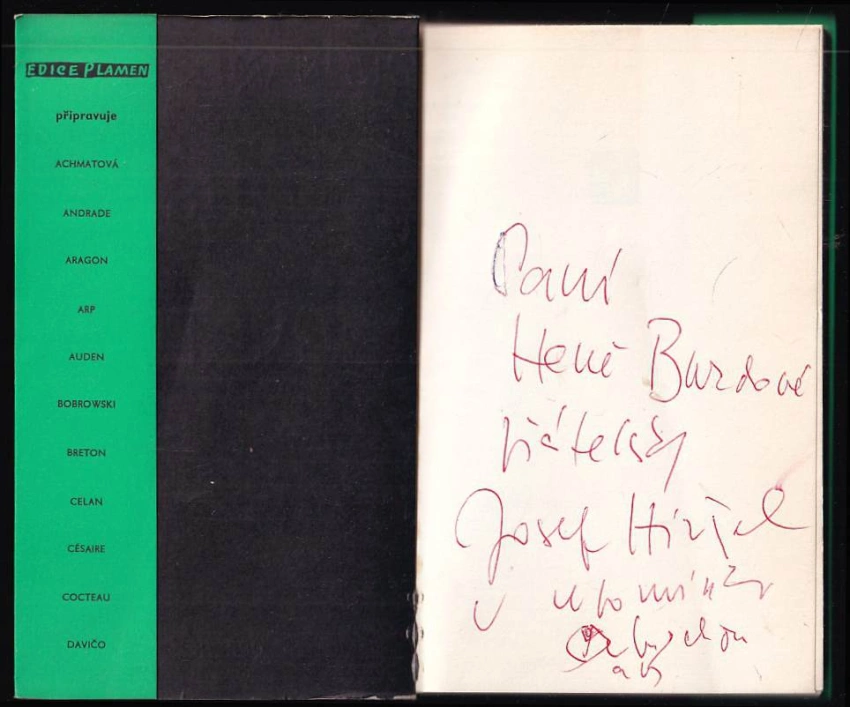 EDICE PLAMEN
připravuje
ACHMATOVÁ
ANDRADE
ARAGON
ARP
AUDEN
BOBROWSKI
BRETON
CELAN
CÉSAIRE
COCTEAU
DAVIČO
Paní
Heně Burdové
přátelsky
Josef Hiršal
v upomínku